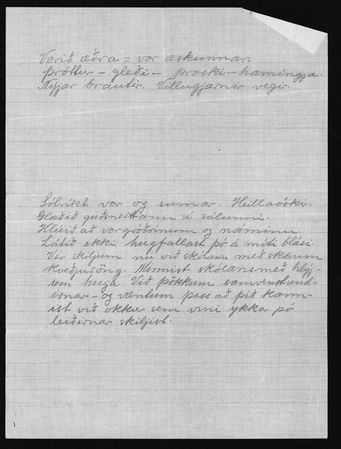 Vorið æðra = vor æskunnar.
þróttur - gleði - þroski - hamingja.
Nýjar brautir. Villugjarnir vegir.
Sólríkt vor og sumar. Heillaóski.
Glæðið guðsneistann í sálunni.
Hlúið að vorgróðrinum og náminu.
Látið ekki hugfallast þó á móti blási
Vér skiljum nú við skólann með
kveðjusöng. Minnist skólans með hlýj
um hug. Við þökkum samverustund
irnar - og væntum þess að þið kann-
ist við okkur sem vini ykka þó
leiðirnar skiljist.